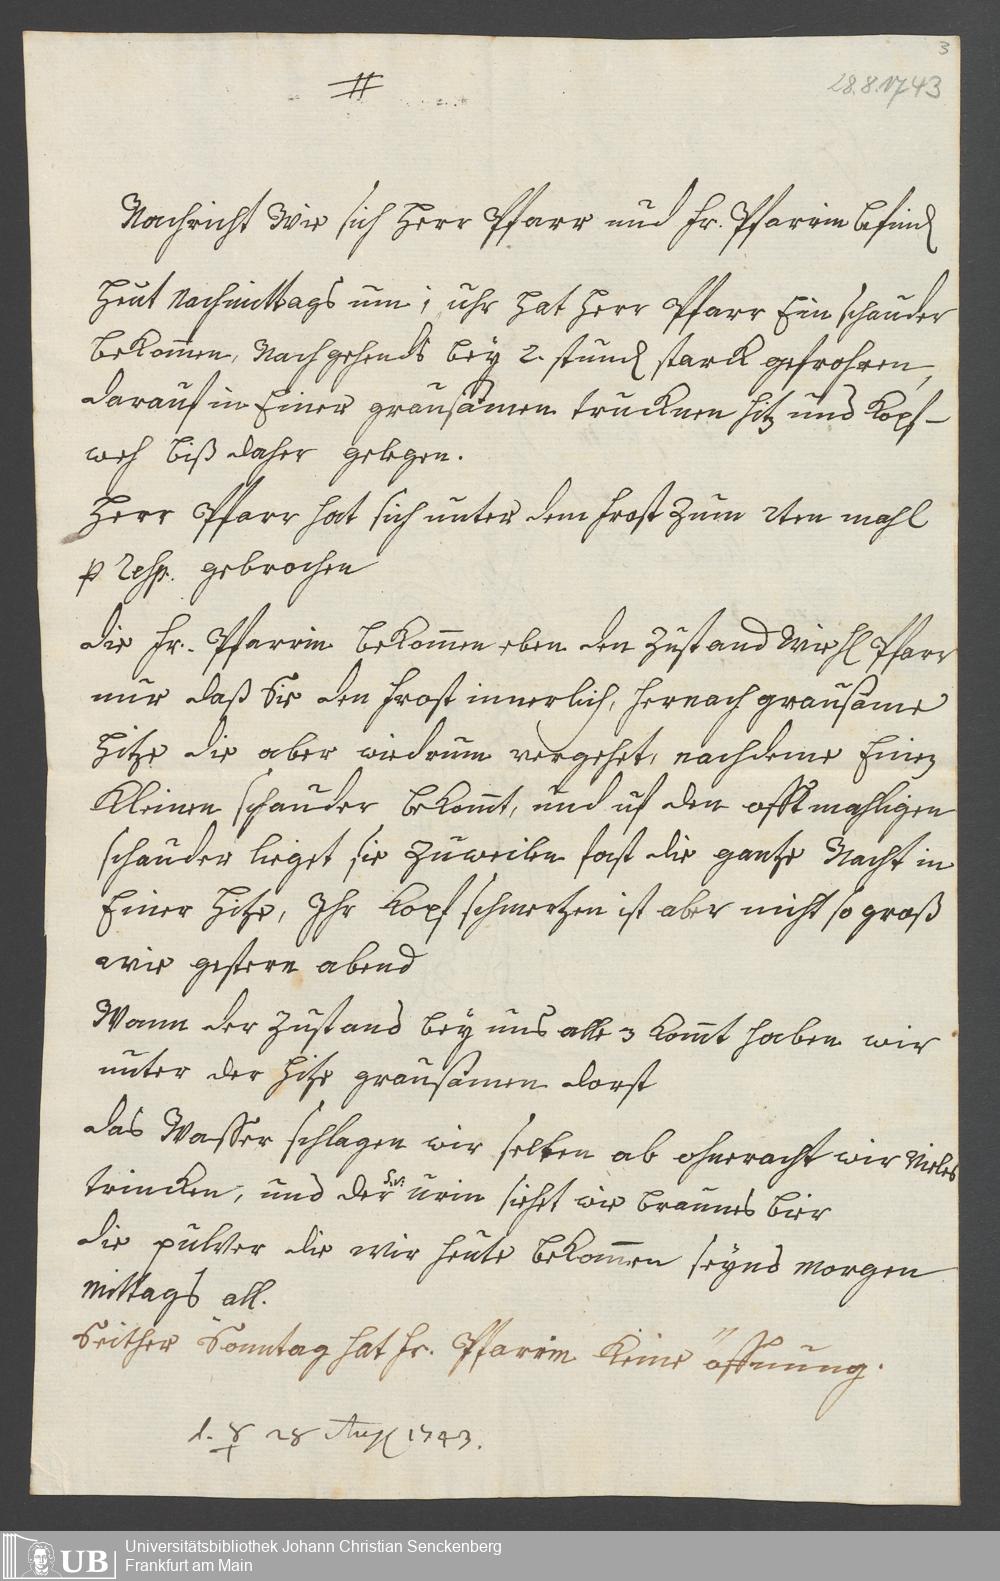 3
28.8.1743
#
Nachricht Wie sich Herr Pfarr und fr. Pfarrin befind
Heut Nachmittags um 1 uhr hat Herr Pfarr Ein schauder
bekom̄en, Nachgehends beÿ 2. stund starck gefrohren,
darauf in Einer grausamen trucknen hitz und Kopf-
weh biß daher gelegen.
Herr Pfarr hat sich unter dem frost zum 2ten mahl
gebrochen
die fr. Pfarrin bekom̄en eben den Zustand Wie H Pfarr
nur daß Sie den frost innerlich, hernach grausame
Hitze die aber wiedrum vergehet, nachdeme Einen
Kleinen schauder bekom̄t, und uf den offtmahligen
schauder lieget sie zuweilen fast die gantze Nacht in
Einer Hitze, Ihr Kopf schmertzen ist aber nicht so groß
wie gestern abend
Wann der Zustand beÿ uns alle 3 kom̄t haben wir
unter der Hitze grausamen dorst
das Wasser schlagen wir selten ab ohneracht wir vieles
trincken, und der S.v. urin siehet wie braunes bier
die pulver die wir heute bekom̄en seÿnd morgen
Mittags all.
Seither Sonntag hat fr. Pfarrin Keine öffnung.
d. ☿ 28 Aug 1743.
Universitätsbibliothek Johann Christian Senckenberg
Frankfurt am Main
UB